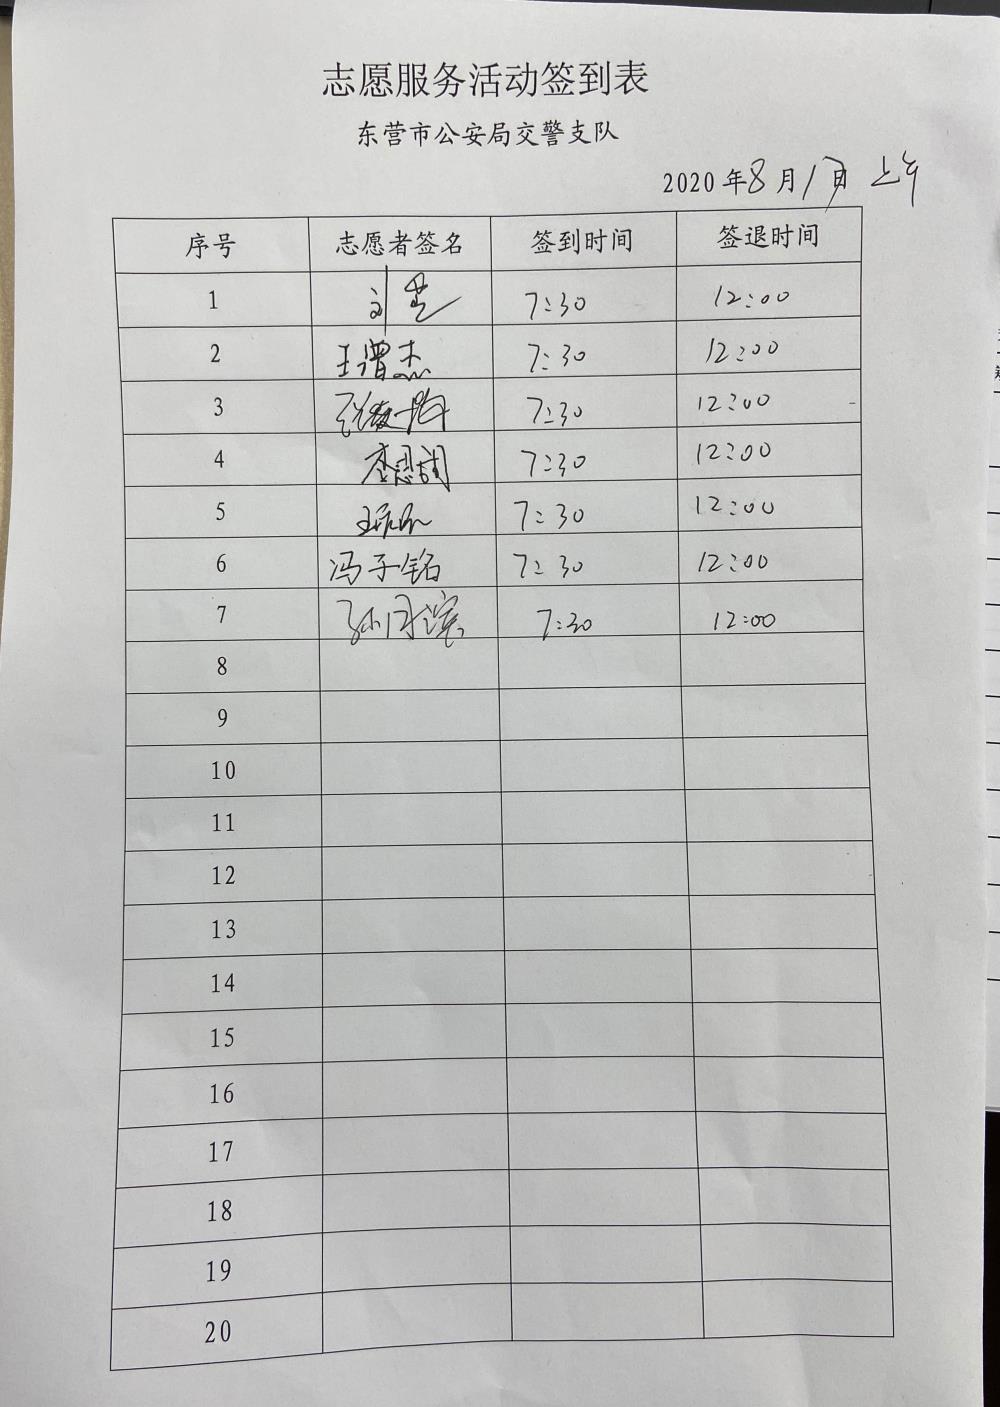 志愿服务活动签到表
东营市公安局交警支队
2020年8月1日 上午
序号 志愿者签名 签到时间 签退时间
1 刘 7:30 12:00
2 王增杰 7:30 12:00
3 张 7:30 12:00
4 李 7:30 12:00
5 王 7:30 12:00
6 冯子铭 7:30 12:00
7 孙 7:30 12:00
8
9
10
11
12
13
14
15
16
17
18
19
20